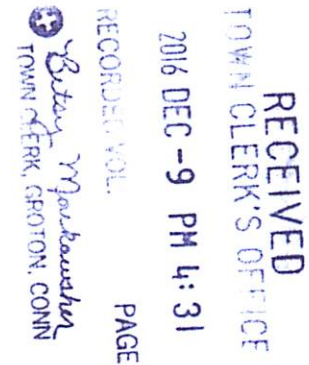 RECEIVED
TOWN CLERK'S OFFICE
2016 DEC -9 PM 4:31
RECORDED VOL. PAGE
Betsy Moukawsher
TOWN CLERK, GROTON, CONN